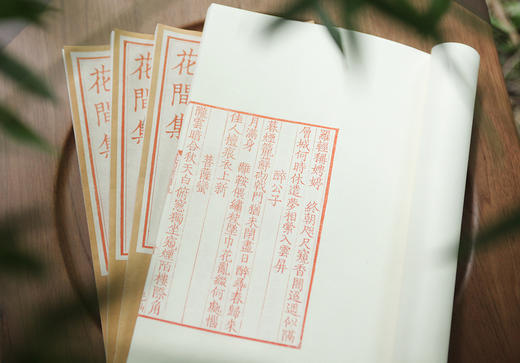 花間集
花間集
花間集
羅輕稱娉婷 終朝咫尺窺香閣迢遙似隔
層城何時休遣夢相縈入雲屏
醉公子
暮煙籠蘚砌戟門猶未閉盡日醉尋春歸來
月滿身 離鞍偎繡袂墜巾花亂綴何處惱
佳人檀痕衣上新
菩薩蠻
隴雲暗合秋天白俯窗獨坐窺煙陌樓際角